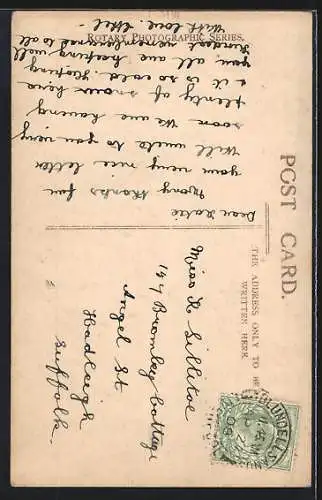 ROTARY PHOTOGRAPHIC SERIES.
POST CARD.
THE ADDRESS ONLY TO BE
WRITTEN HERE.
Dear Katie
Many thanks for
your very nice letter
Will write to you very
soon We are having
plenty of snow here
& it is so cold. Hoping
you all are keeping well
Kindest remembrances to all
With love. Ethel
Miss K Lillitoe
147 Bromley Cottage
Angel St
Hadleigh
Suffolk.
BLUNDELLSANDS